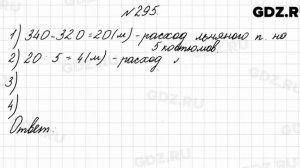 GDZ.RU
№295.
1) 340-320=20(м) - расход льняного п. на
5 костюмов
2) 20 : 5 = 4(м) - расход
3)
4)
Ответ:
GDZ.RU